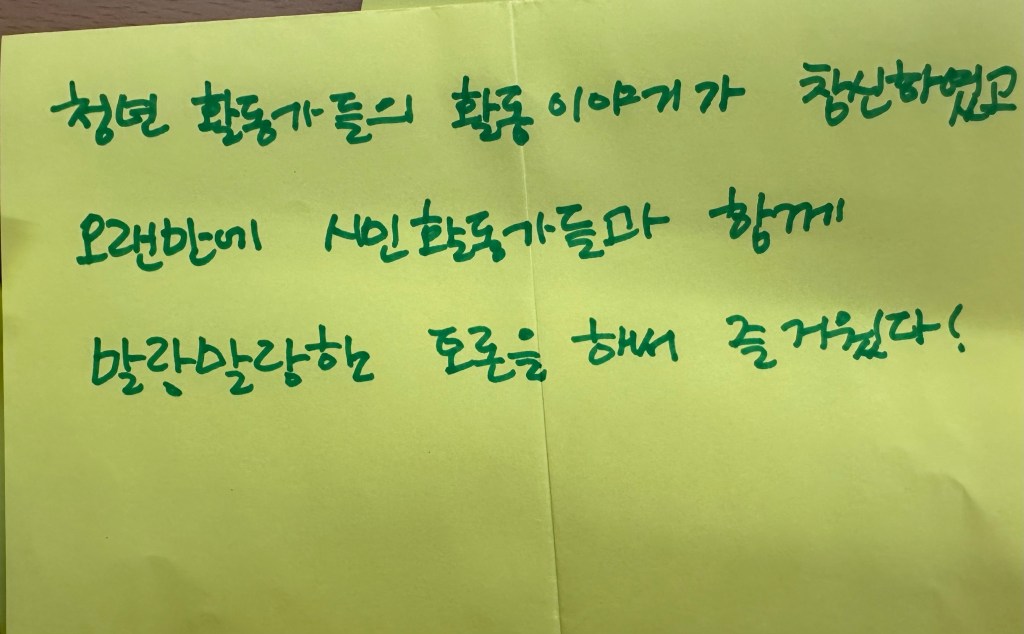 청년 활동가들의 활동이야기가 참신하였고
오랜만에 시민활동가들과 함께
말랑말랑한 토론을 해서 즐거웠다!